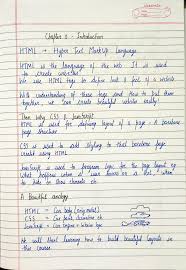 Chapter 0 - Introduction
HTML → Hyper Text Markup Language
HTML is the language of the web. It is used
to create websites.
We use HTML tags to define look & feel of a website
With understanding of these tags and how to put them
together, we can create beautiful websites easily!
Then Why CSS & JavaScript
HTML is used for defining layout of a page - A barebone
page structure.
CSS is used to add styling to that barebone page
created using HTML.
JavaScript is used to program logic for the page layout eg.
What happens when a user hovers on a text, when
to hide or show elements etc.
A Beautiful analogy
HTML = Car body (only metal)
CSS = Car paint, decoration etc.
JavaScript = Car engine + interior logic
We will start learning how to build beautiful layouts in
this course.